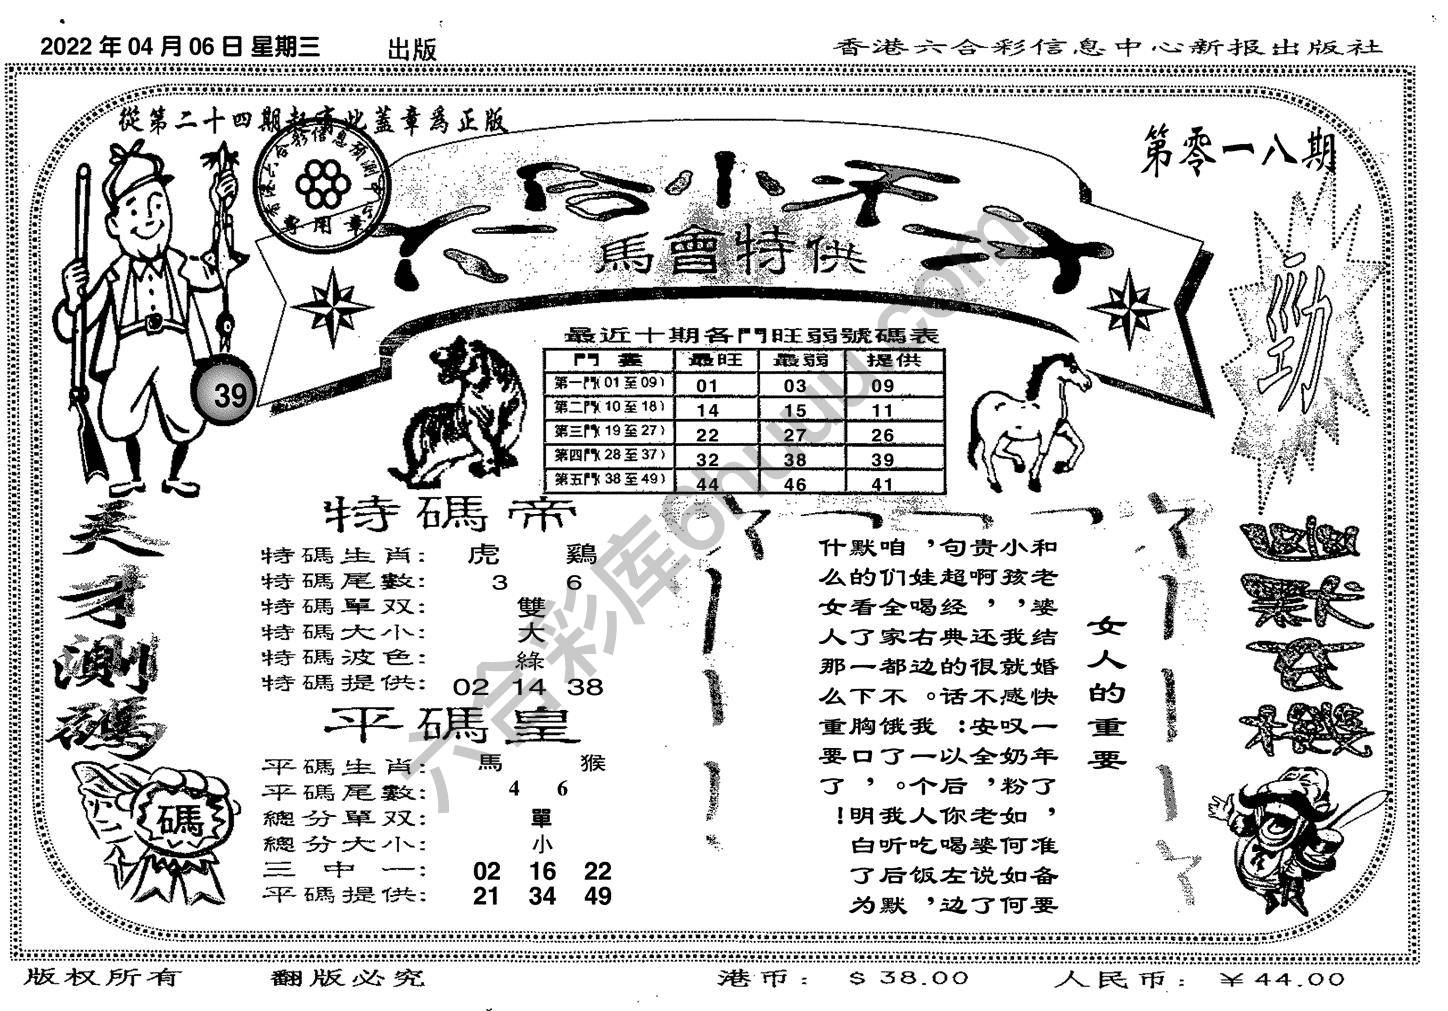 2022 年 04 月 06 日 星期三 出版
香港六合彩信息中心新报出版社
從第二十四期起有此蓋章爲正版
第零一八期
馬會特供
39
勁
最近十期各門旺弱號碼表
門 最旺 最弱 提供
第一門(01至09) 01 03 09
第二門(10至18) 14 15 11
第三門(19至27) 22 27 26
第四門(28至37) 32 38 39
第五門(38至49) 44 46 41
天才測碼
碼
特碼帝
特碼生肖: 虎 鷄
特碼尾數: 3 6
特碼單双: 雙
特碼大小: 大
特碼波色: 綠
特碼提供: 02 14 38
平碼皇
平碼生肖: 馬 猴
平碼尾數: 4 6
總分單双: 單
總分大小: 小
三中一: 02 16 22
平碼提供: 21 34 49
女人的重要
和老婆结婚快一年了，准备要
小孩，我就感叹奶粉如何如何
贵啊，还很不安全，老婆说了
句超经典的话：以后你喝左边
，娃喝右边。我一个人吃饭，
咱们全家都不饿了。我听后默
默的看了一下胸口，明白了为
什么女人那么重要了！
六合彩库6huuu.com
版权所有 翻版必究 港币: $38.00 人民币: ¥44.00